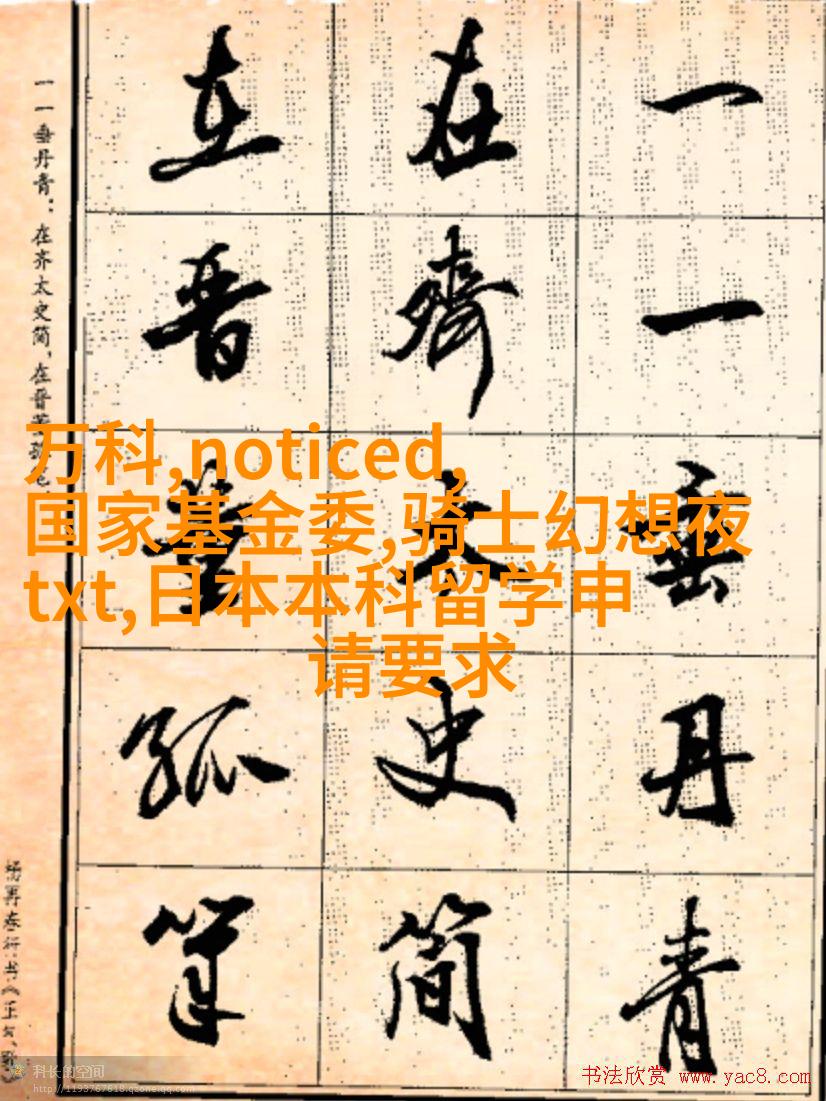 一一垂丹青
在齐太史简
在晋董狐笔
一一垂丹青：在齐太史简，在晋董狐笔
万科,noticed,
国家基金委,骑士幻想夜
txt,日本本科留学申
请要求
科长的空间
http://1193767618.qzone.qq.com
书法欣赏 www.yac8.com